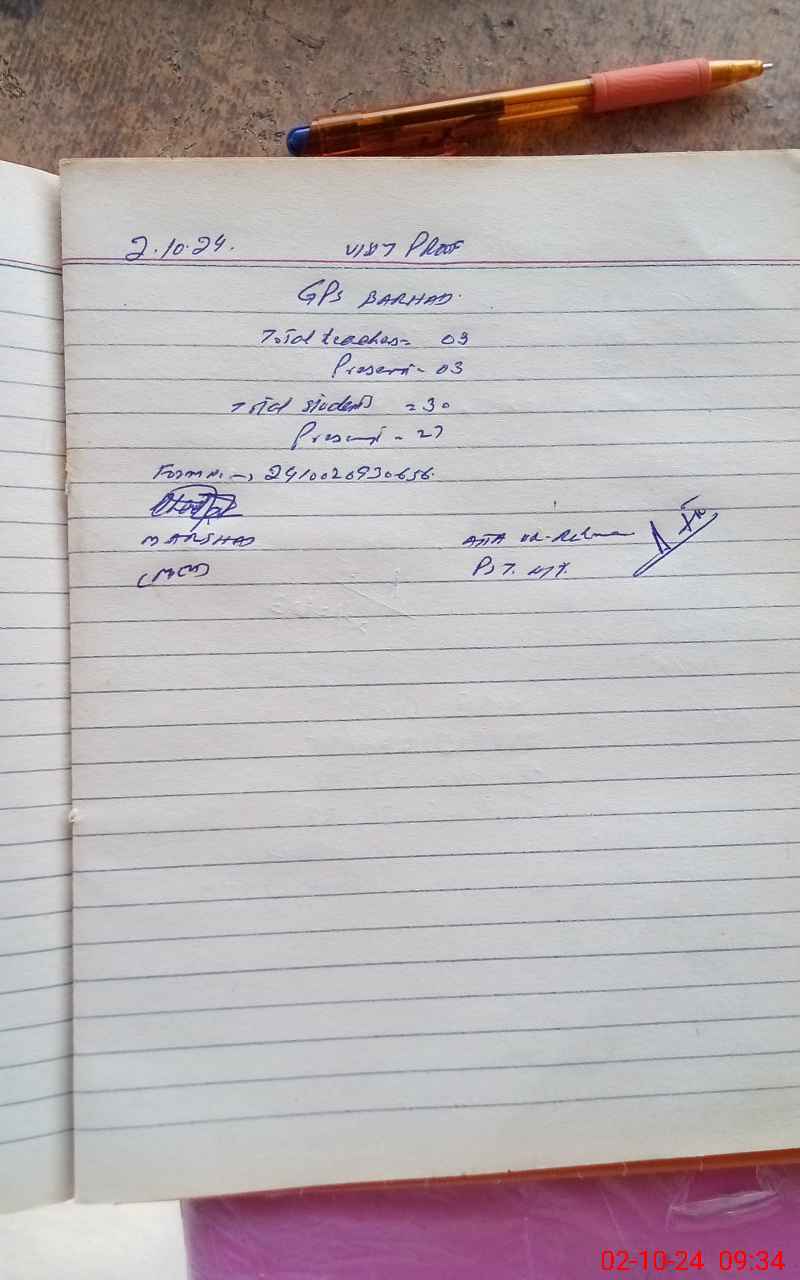 2.10.24. VISIT PROOF
GPS BARHAD.
Total teachers = 03
Present - 03
Total students = 30
Present - 27
Form No. → 2410020930656
M ARSHAD ATTA UR-Rehman
PST.
02-10-24 09:34